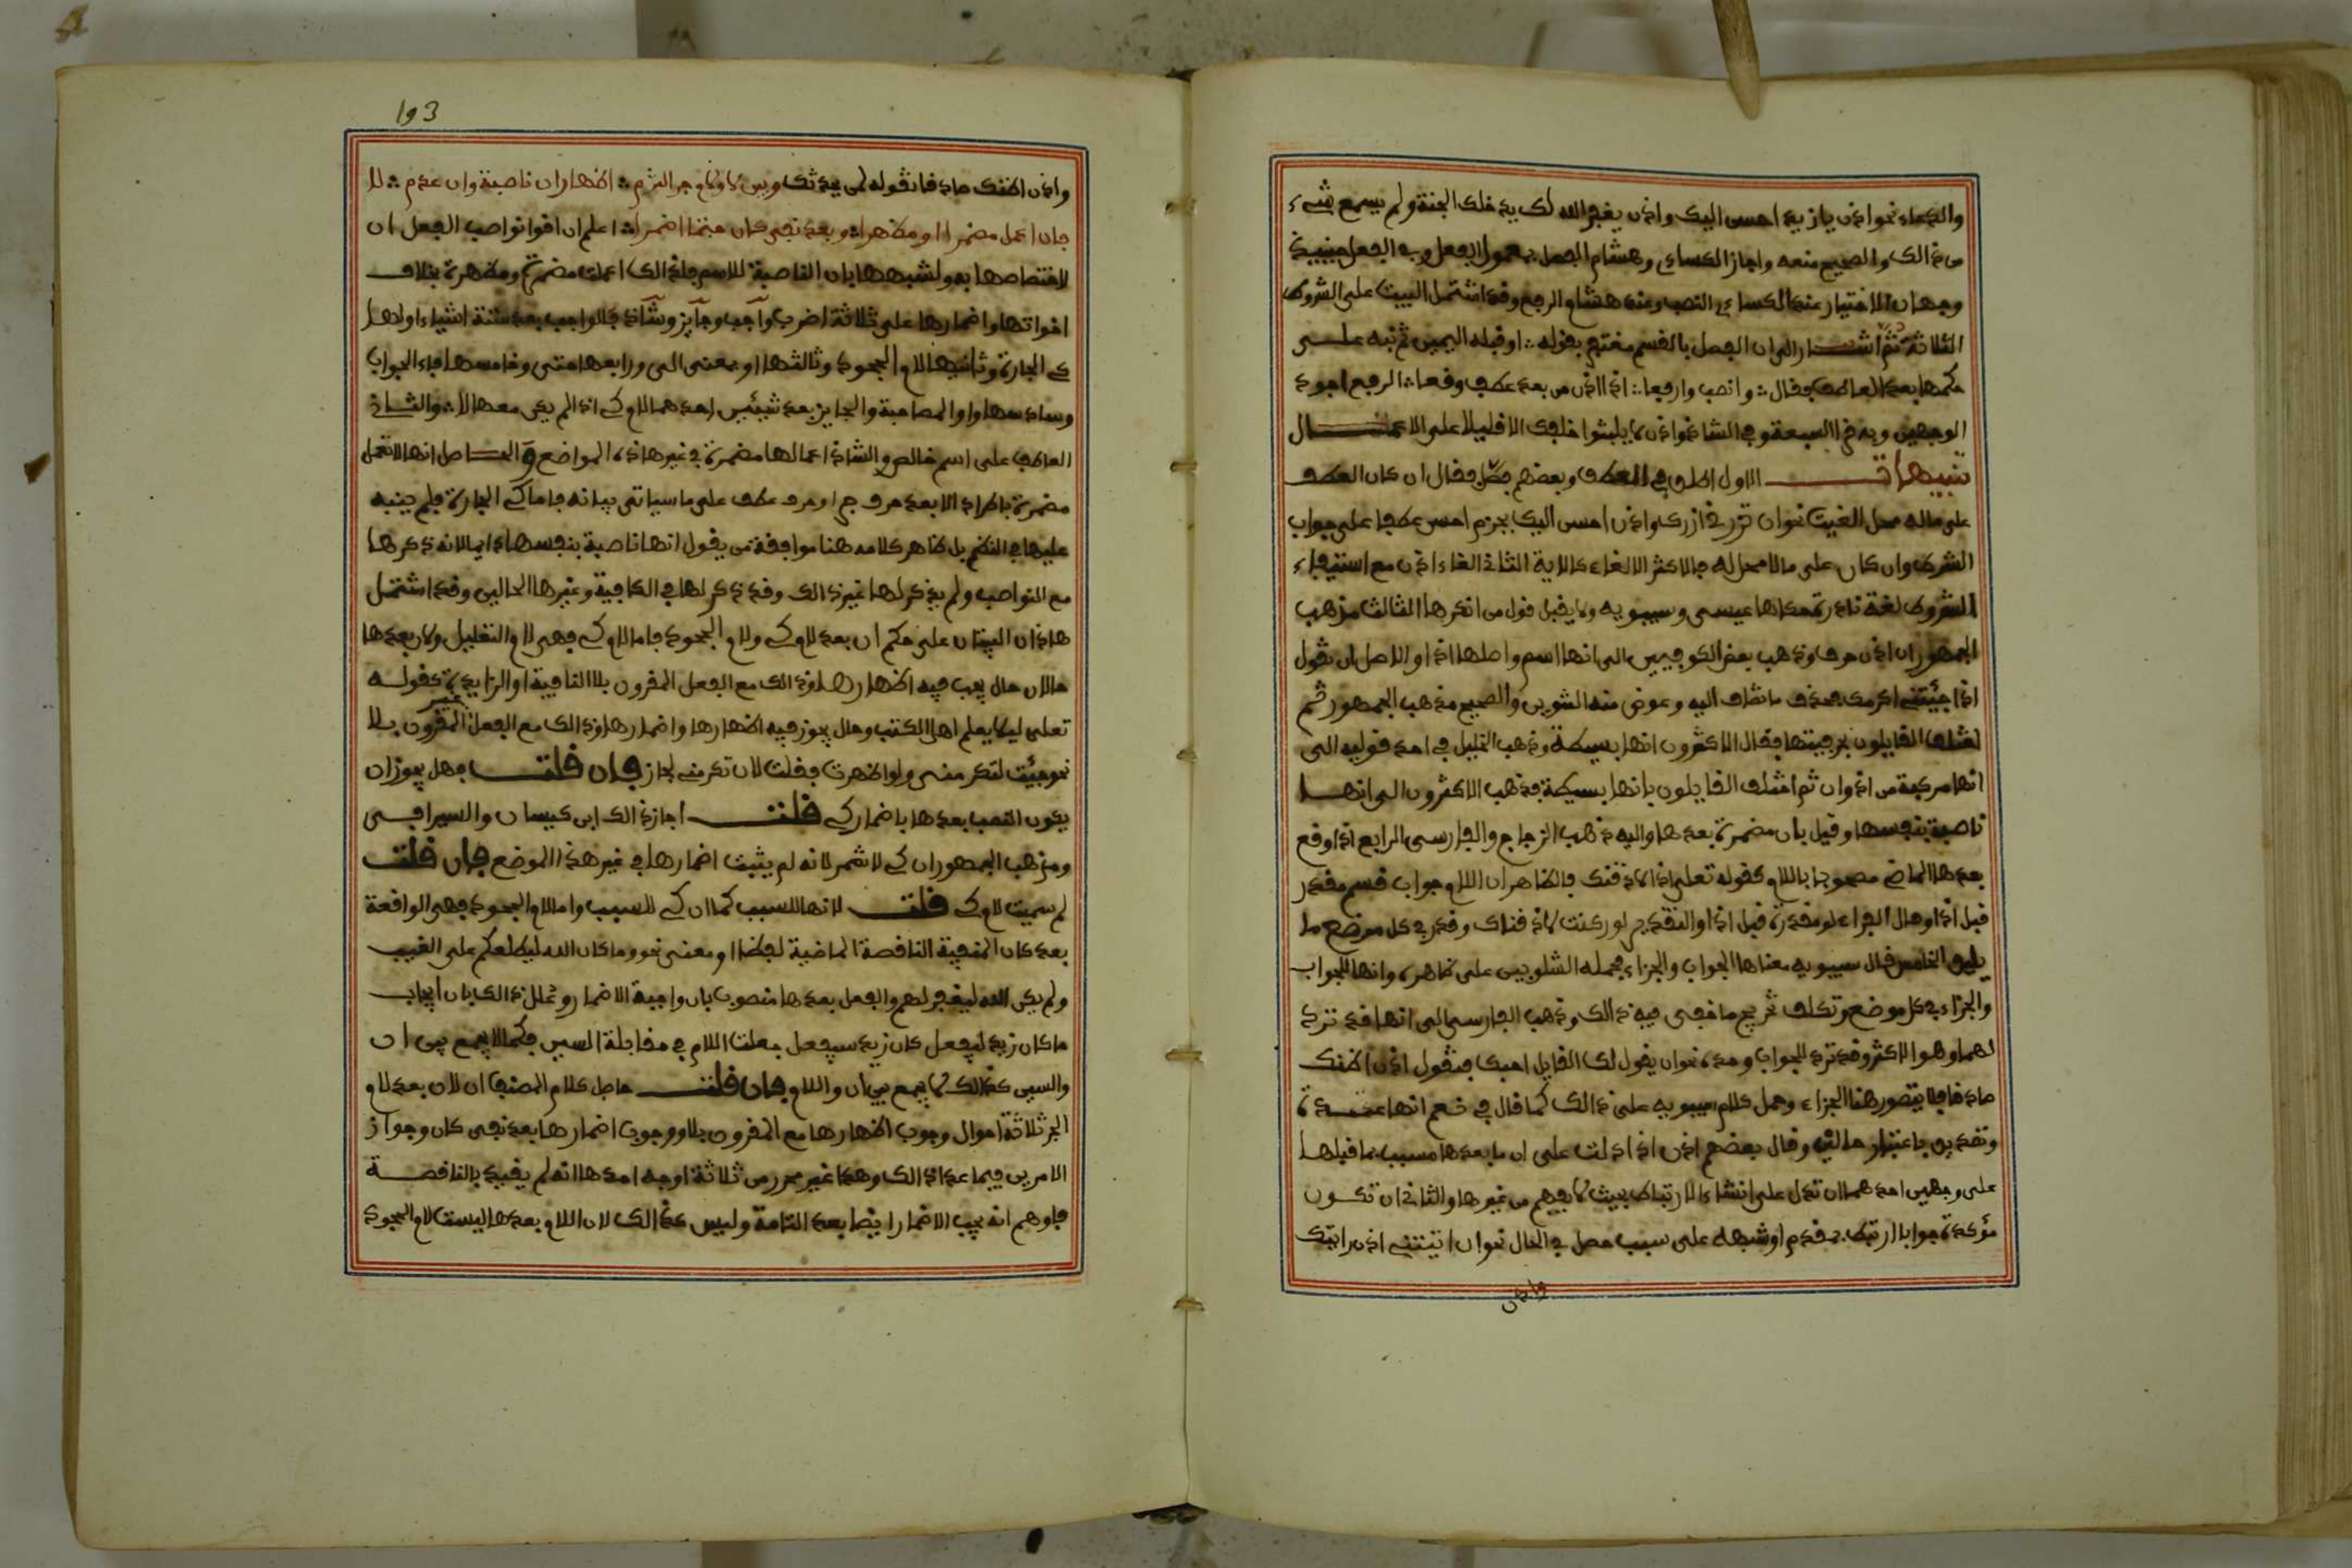 والدعاء نحو اذن يا زيد احسن اليك واذن يغفر الله لك يدخلك الجنة ولم يسمع شيء
من ذالك والصحيح منعه واجاز الكساءي وهشام الفصل بمعمول الفعل وفي الفعل حينيذ
وجهان الاختيار عند الكساءي النصب وعند هشام الرفع وقد اشتمل البيت على الشروط
الثلاثة ثم اشار الى ان الفصل بالقسم مغتفر بقوله ∴ او قبله اليمين ثم نبه على
حكمها بعد العاطف فقال ∴ وانصب وارفعا ∴ اذا اذن من بعد عطف وقعا ∴ الرفع اجود
الوجهين وبه قرا السبعة وفي الشاذ واذن لا يلبثوا خلفك الا قليلا على الاعمال
تنبيهات الاول اطلق في العطف وبعضهم فصل فقال ان كان العطف
على ماله محل الغيت نحو ان تزرني ازرك واذن احسن اليك بجزم احسن عطفا على جواب
الشرط وان كان على ما لا محل له فالاكثر الالغاء كالاية الثاني الغاء اذن مع استيفاء
الشروط لغة نادرة حكاها عيسى وسيبويه ولا يقبل قول من انكرها الثالث مذهب
الجمهور ان اذن حرف وذهب بعض الكوفيين الى انها اسم واصلها اذا والاصل ان تقول
اذا جيتني اكرمك فحذف ما تضاف اليه وعوض منه التنوين والصحيح مذهب الجمهور ثم
اختلف القايلون بحرفيتها فقال الاكثرون انها بسيطة وذهب الخليل في احد قوليه الى
انها مركبة من اذ وان ثم اختلف القايلون بانها بسيطة فذهب الاكثرون الى انها
ناصبة بنفسها وقيل بان مضمرة بعدها واليه ذهب الزجاج والفارسي الرابع اذا وقع
بعدها الماضي مصحوبا باللام كقوله تعلى اذا لاذقنك فالظاهر ان اللام جواب قسم مقدر
قبل اذا وقال الفراء لو مقدرة قبل اذا والتقدير لو ركنت لاذقناك وقدر في كل موضع ما
يليق الخامس قال سيبويه معناها الجواب والجزاء فحمله الشلوبين على ظاهره وانها للجواب
والجزاء في كل موضع وتكلف تخريج ما خفي فيه ذالك وذهب الفارسي الى انها قد ترد
لهما وهو الاكثر وقد ترد للجواب وحده نحو ان يقول لك القايل احبك فتقول اذن اظنك
صادقا فلا يتصور هنا الجزاء وحمل كلام سيبويه على ذالك كما قال في نعم انها عدة
وتصديق باعتبار حالين وقال بعضهم اذن اذا دلت على ان ما بعدها مسبب بما قبلها
على وجهين احدهما ان تدل على انشاء الارتباط بحيث لا يفهم من غيرها والثاني ان تكون
مؤكدة جوابا ارتبط بمقدم او منبهة على سبب حصل في الحال نحو ان اتيتني اذن اتيك
واذن
193
واذن اظنك صادقا تقوله لمن يحدثك وبين لا ولام جر التزم ∴ اظهار ان ناصبة وان عدم ∴ لا
فان اعمل مضمرا او مظهرا ∴ وبعد نفي كان حتما اضمرا ∴ اعلم ان اقوى نواصب الفعل ان
لاختصاصها به ولشبهها بان الناصبة للاسم فلذالك اعملت مضمرة ومظهرة بخلاف
اخواتها واضمارها على ثلاثة اضرب واجب وجايز وشاذ فالواجب بعد ستة اشياء اولها
كي الجارة وثانيها لام الجحود وثالثها او بمعنى الى ورابعها حتى وخامسها فاء الجواب
وسادسها واو المصاحبة والجايز بعد شيئين احدهما لام كي اذا لم يكن معها لا ∴ والثاني
العاطف على اسم خالص والشاذ اعمالها مضمرة في غير هاذه المواضع والحاصل انها لا تعمل
مضمرة باطراد الا بعد حرف جر او حرف عطف على ما سياتي بيانه فاما كي الجارة فلم ينبه
عليها في النظم بل ظاهر كلامه هنا موافقة من يقول انها ناصبة بنفسها دايما لانه ذكرها
مع النواصب ولم يذكر لها غير ذالك وقد ذكر لها في الكافية وغيرها الحالين وقد اشتمل
هاذان البيتان على حكم ان بعد لام كي ولام الجحود فاما لام كي فهي لام التعليل ولان بعدها
حالان حال يجب فيه اظهارها وذالك مع الفعل المقرون بلا النافية او الزايدة كقوله
تعلى ليلا يعلم اهل الكتب وحال يجوز فيه اظهارها واضمارها وذالك مع الفعل غير المقرون بلا
نحو جيت لتكرمني ولو اظهرت فقلت لان تكرمني لجاز فان قلت فهل يجوز ان
يكون النصب بعدها باضمار كي قلت اجاز ذالك ابن كيسان والسيرافي
ومذهب الجمهور ان كي لا تضمر لانه لم يثبت اضمارها في غير هذا الموضع فان قلت
لم سميت لام كي قلت لانها للسبب كما ان كي للسبب واما لام الجحود فهي الواقعة
بعد كان المنفية الناقصة الماضية لفظا او معنى نحو وما كان الله ليطلعكم على الغيب
ولم يكن الله ليغفر لهم والفعل بعدها منصوب بان واجبة الاضمار وعلل ذالك بان ايجاب
ما كان زيد ليفعل كان زيد سيفعل جعلت اللام في مقابلة السين فكما لا يجمع بين ان
والسين كذالك لا يجمع بين ان واللام فان قلت حاصل كلام المصنف ان لان بعد لام
الجر ثلاثة احوال وجوب اظهارها مع المقرون بلا ووجوب اضمارها بعد نفي كان وجواز
الامرين فيما عدا ذالك وهذا غير محرر من ثلاثة اوجه احدها انه لم يقيد بالناقصة
فاوهم انه يجب الاضمار ايضا بعد التامة وليس كذالك لان اللام بعدها ليست لام الجحود